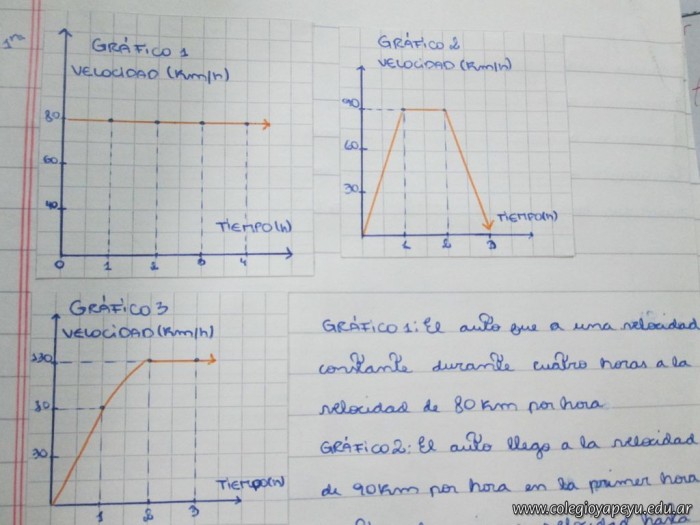 1ra
GRÁFICO 1
VELOCIDAD (Km/h)
80
60
40
TIEMPO(h)
0 1 2 3 4
GRÁFICO 2
VELOCIDAD (Km/h)
90
60
30
TIEMPO(h)
1 2 3
GRÁFICO 3
VELOCIDAD (Km/h)
30
TIEMPO(h)
1 2 3
GRÁFICO 1: El auto que a una velocidad
constante durante cuatro horas a la
velocidad de 80 Km por hora
GRÁFICO 2: El auto llego a la velocidad
de 90Km por hora en la primer hora
velocidad hasta
www.colegioyapeyu.edu.ar